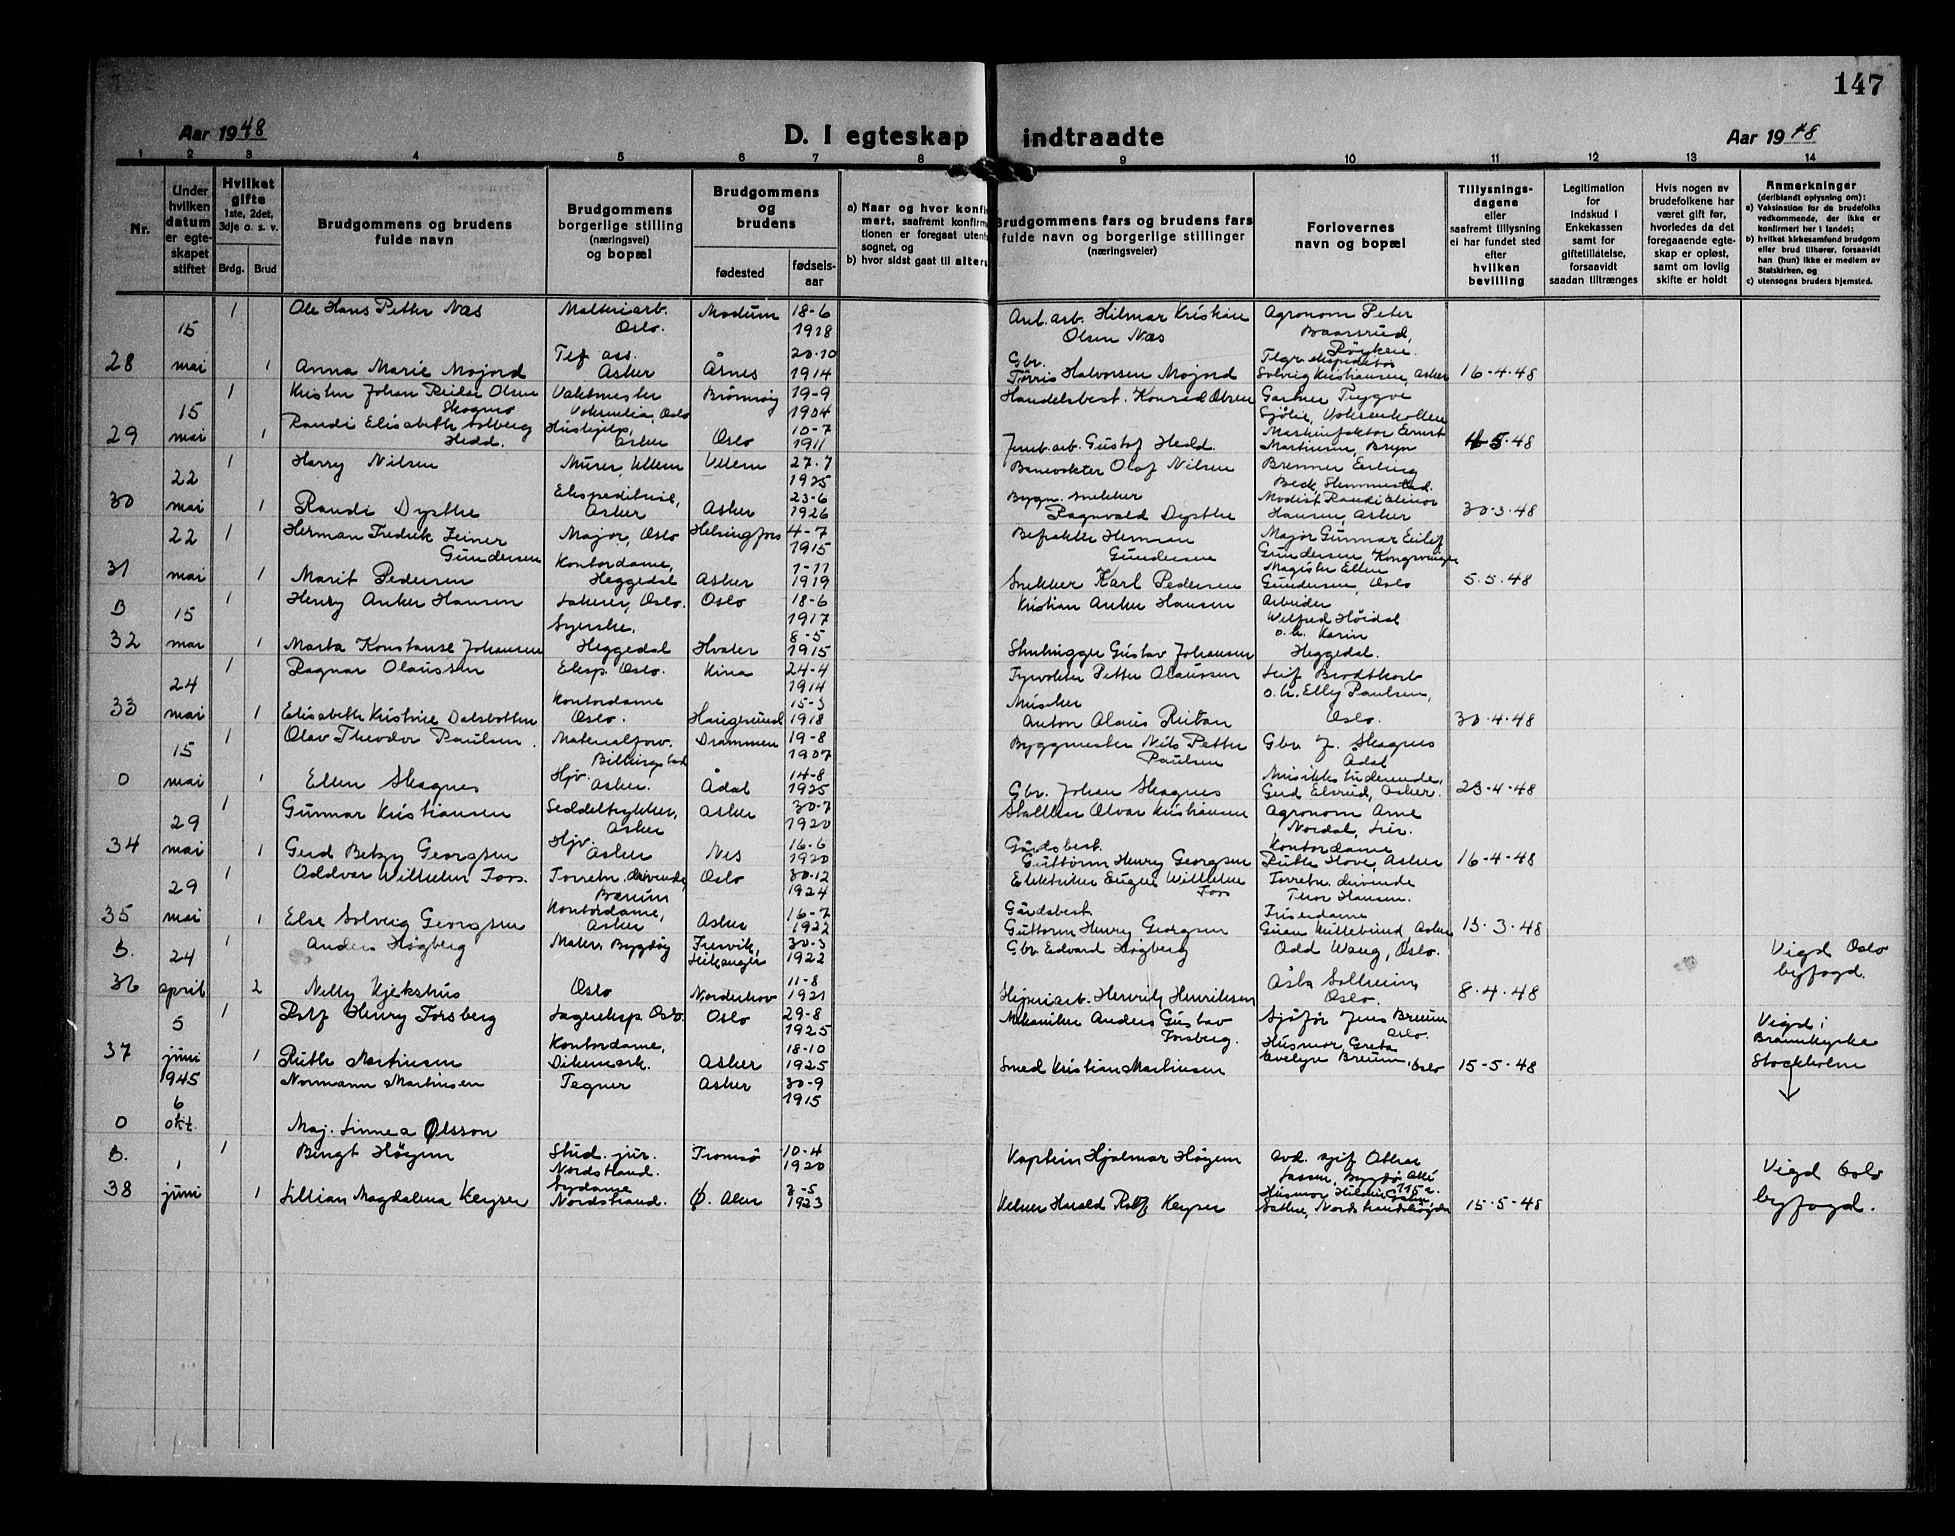 147
Aar 1948
D. I egteskap indtraadte
Aar 1948
1 2 3 4 5 6 7 8 9 10 11 12 13 14
Nr.
Under hvilken datum er egteskapet stiftet
Hvilket gifte
1ste, 2det, 3dje o. s. v.
Brdg. Brud
Brudgommens og brudens fulde navn
Brudgommens borgerlige stilling (næringsvei) og bopæl
Brudgommens og brudens
fødested
fødselsaar
a) Naar og hvor konfi
mert, saafremt konfirm
tionen er foregaat utenf
sognet, og
b) hvor sidst gaat til alters
Brudgommens fars og brudens fars
fulde navn og borgerlige stillinger
(næringsveier)
Forlovernes
navn og bopæl
Tillysnings-
dagene
eller
saafremt tillysning
ei har fundet sted
efter
hvilken
bevilling
Legitimation
for
indskud i
Enkekassen
samt for
giftetillatelse,
forsaavidt
saadan tiltrænges
Hvis nogen av
brudefolkene har
været gift før,
hvorledes da det
foregaaende egte-
skap er opløst,
samt om lovlig
skifte er holdt
Anmerkninger
(deriblandt oplysning om):
a) Vaksination for de brudefolks
vedkommende, der ikke er
konfirmert her i landet;
b) hvilket kirkesamfund brudgom
eller brud tilhører, forsaavidt
han (hun) ikke er medlem av
Statskirken, og
c) utensogns bruders hjemsted.
15 1 Ole Hans Petter Næs Oslo. Modum 18-6 1918 Hilmar Kristian Olsen Næs Agronom Peter Baarsrud, Røyken.
28 mai 1 Anna Marie Mojord Tlf ass. Asker Årnes 20-10 1914 Gbr. Tørris Halvorsen Mojord Telgr. ekspeditør Solveig Kristiansen, Asker 16-4-48
15 1 Kristen Johan Reidar Olsen Skogmo Vaktmester Oslo Brønnøy 19-9 1904 Handelsbest. Konrad Olsen Gartner Trygve Sjølie, Voksenkollen
29 mai 1 Randi Elisabeth Solberg Hedd. Hushjelp, Asker Oslo 10-7 1911 Jernb.arb. Gustaf Hedd. Ernst Martinsen, Bryn 5-48
22 1 Harry Nilsen Murer, Ullern Ullern 27-7 1925 Banevokter Olaf Nilsen Brenner Erling Beck Slemmestad.
30 mai 1 Randi Dysthe Ekspeditrise, Asker Asker 23-6 1926 Bygn. snekker Ragnvald Dysthe Modist Randi Elinor Hansen, Asker 30-3-48
22 1 Herman Fredrik Zeiner Gundersen Major, Oslo Helsingfors 4-7 1915 Befrakter Herman Gundersen Major Gunnar Eilif Gundersen Kongsvinger
31 mai 1 Marit Pedersen Kontordame, Heggedal Asker 1-11 1919 Snekker Karl Pedersen Magister Ellen Gundersen, Oslo 5.5.48
B 15 1 Henry Anker Hansen Lakerer, Oslo. Oslo 18-6 1917 Kristian Anker Hansen Arbeider Wilfred Höidal
32 mai 1 Marta Konstanse Johansen Syerske, Heggedal Hvaler 8-5 1915 Skuhugger Gustav Johansen o.h. Karin Heggedal.
24 1 Ragnar Olaussen Eksp. Oslo. Kina 24-4 1914 Fyrvokter Petter Olaussen Leif Brodtkorb
33 mai 1 Elisabeth Kristine Dalsbotten Kontordame Oslo. Haugesund 15-3 1918 Musiker Anton Olaus Reitan o.h. Elly Paulsen, Oslo. 30-4-48
15 1 Olav Theodor Paulsen. Materialforv. Billingstad Drammen 19-8 1907 Byggmester Nils Petter Paulsen Gbr. J. Skagnes Ådal
0 mai 1 Ellen Skagnes Hjv. Asker. Ådal 14-8 1925 Gbr. Johan Skagnes Musikkstuderende, Gerd Elvrud, Asker. 23-4-48
29 1 Gunnar Kristiansen Seddeltrykker, Asker Asker 30-7 1920 Alvar Kristiansen Agronom Arne Nordal, Lier.
34 mai 1 Gerd Betzy Georgsen Hjv. Asker Nes 16-6 1920 Gårdsbest. Guttorm Henry Georgsen Kontordame Ruth Hove, Asker 16-4-48
29 1 Oddvar Wilhelm Fors. Forretn. drivende, Bærum Oslo 30-12 1924 Elektriker Eugen Wilhelm Fors Forretn. drivende Thor Hansen.
35 mai 1 Else Solveig Georgsen Kontordame, Asker Asker 16-7 1922 Gårdsbest. Guttorm Henry Georgsen Friserdame Asker 13-3-48
B. 24 1 Anders Högberg Maler, Bygdøy Fresvik, Leikanger 30-3 1922 Gbr. Edvard Högberg Odd Wang, Oslo. Vigd Oslo byfogd.
36 april 2 Nelly Kjekshus Oslo Norderhov 11-8 1921 Henrik Henriksen Åsta Solheim, Oslo. 8-4-48
5 1 Rolf Henry Forsberg Lagereksp Oslo. Oslo 29-8 1925 Mekaniker Anders Gustav Forsberg. Sjåfør Jens Breum Oslo. Vigd i Brännkyrka Stockholm
37 juni 1 Ruth Martinsen Kontordame, Dikemark. Asker 18-10 1925 Smed Kristian Martinsen Husmor, Greta Evelyn Breum, Oslo 15-5-48
1945 6 Normann Martinsen Tegner Asker 30-9 1915
0 okt. Maj. Linnea Olsson
B. 1 1 Bengt Höyem Stud. jur. Nordstrand. Tromsø 10-4 1920 Kaptein Hjalmar Höyem avd. sjef Othar Lassen, Bygdø Alle 115 a. Vigd Oslo byfogd.
38 juni 1 Lillian Magdalena Keyser Sydame Nordstrand. Ø. Aker 2-5 1923 Harald Rolf Keyser Husmor Nordstrandshøgda 15-5-48